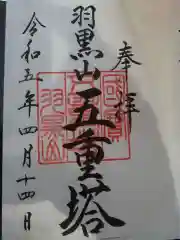 奉拝
羽黒山
五重塔
令和五年四月十四日